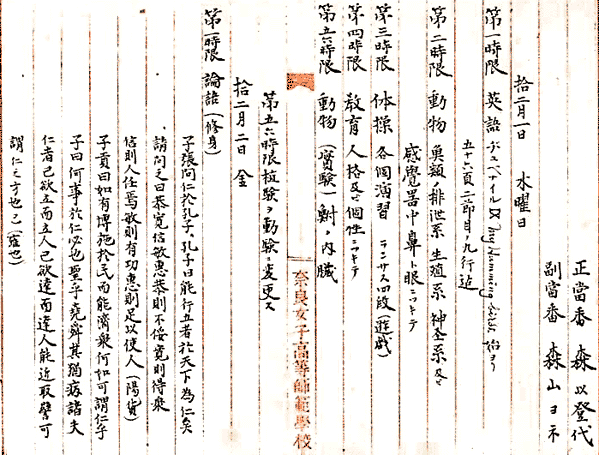 正當番 森 以登代
副當番 森山 ヨネ
拾二月一日 水曜日
第一時限 英語 ヂュベナイル My Humming 始ヨリ
五十六頁二節目ノ九行迄
第二時限 動物 魚類ノ排泄系 生殖系 神圣系及ビ
感覺器中鼻ト眼ニツキテ
第三時限 体操 各個演習 ランサス四段(遊戯)
第四時限 教育 人格及ビ個性ニツキテ
第五六時限 動物(實験)鮒ノ内臓
奈良女子高等師範學校
第五六時限 植験ヲ動験ニ変更ス
拾二月二日 金
第一時限 論語(修身)
子張問仁於孔子、孔子曰能行五者於天下為仁矣
請問之曰恭寛信敏惠恭則不侮寛則得衆
信則人任焉敏則有功惠則足以使人(陽貨)
子貢曰如有博施於民而能濟衆何如可謂仁乎
子曰何事於仁必也聖乎堯舜其猶病諸夫
仁者己欲立而立人己欲達而達人能近取譬可
謂仁之方也已(雍也)